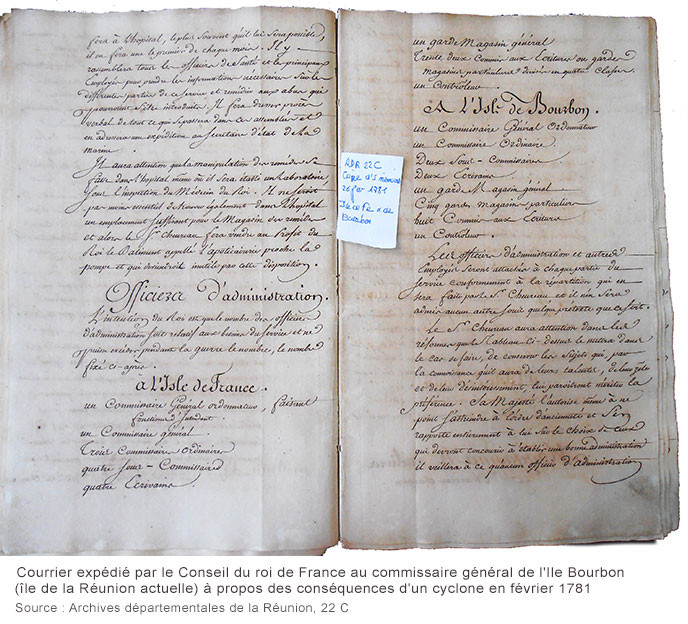 fera à l'hopital, le plus souvent qu'il lui sera possible,
il en fera une le premier de chaque mois. Il y
rassemblera tous les officiers de Santé et les principaux
Employés pour prendre les informations nécessaires sur les
différentes parties de ce service et remédier aux abus qui
pourroient s'être introduits. Il fera dresser procès
verbal de tout ce qui se passera dans ces assemblées et
en adressera une expédition au Secretaire d'état de la
marine.
Il aura attention que la manipulation des remedes se
fasse dans l'hopital même où il sera établi un laboratoire
sous l'inspection du Médecin du Roi. Il ne seroit
pas moins essentiel de trouver également dans l'hopital
un emplacement suffisant pour le Magasin des remèdes
et alors le S.r Chevreau fera vendre au Profit du
Roi le Batiment appellé l'apoticairerie proche la
pompe et qui deviendroit inutile par cette disposition.
Officiers d'administration.
L'intention du Roi est que le nombre des officiers
d'administration soit relatif aux besoins du service et ne
puisse exceder pendant la guerre le nombre, le nombre
fixé ci-après
à L'Isle de France.
un Commissaire Général ordonnateur, faisant
fonctions d'Intendant.
un Commissaire général
Trois Commissaires Ordinaires
quatre Sous-Commissaires
quatre Ecrivains
un garde Magasin général
Trente deux Commis aux Ecritures ou gardes
magasins particuliers divisés en quatre Classes
un Controleur.
A L'Isle de Bourbon.
un Commissaire Général Ordonnateur
un Commissaire Ordinaire
Deux Sous-Commissaires
Deux Ecrivains
un garde Magasin général
Cinq gardes magasins particuliers
huit Commis aux Ecritures
un Controleur.
Les officiers d'administration et autres
Employés seront attachés à chaque partie du
service conformément à la répartition qui en
sera faite par le S.r Chevreau et il n'en sera
admis aucun autre sous quelque prétexte que ce soit.
Le S.r Chevreau aura attention dans les
réformes que le Tableau ci-dessus le mettra dans
le cas de faire, de conserver les Sujets qui, par
la connoissance qu'il aura de leurs talents, de leur zèle
et de leur désintéressement, lui paroitront mériter la
préférence. Sa Majesté l'autorise même à ne
point s'astreindre à l'ordre d'ancienneté et s'en
rapporte entièrement à lui sur le choix de ceux
qui devront concourir à établir une bonne administration
il veillera à ce qu'aucun officier d'administration
ADR 22 C
26 fev 1781
Bourbon
Courrier expédié par le Conseil du roi de France au commissaire général de l'Ile Bourbon
(île de la Réunion actuelle) à propos des conséquences d'un cyclone en février 1781
Source : Archives départementales de la Réunion, 22 C